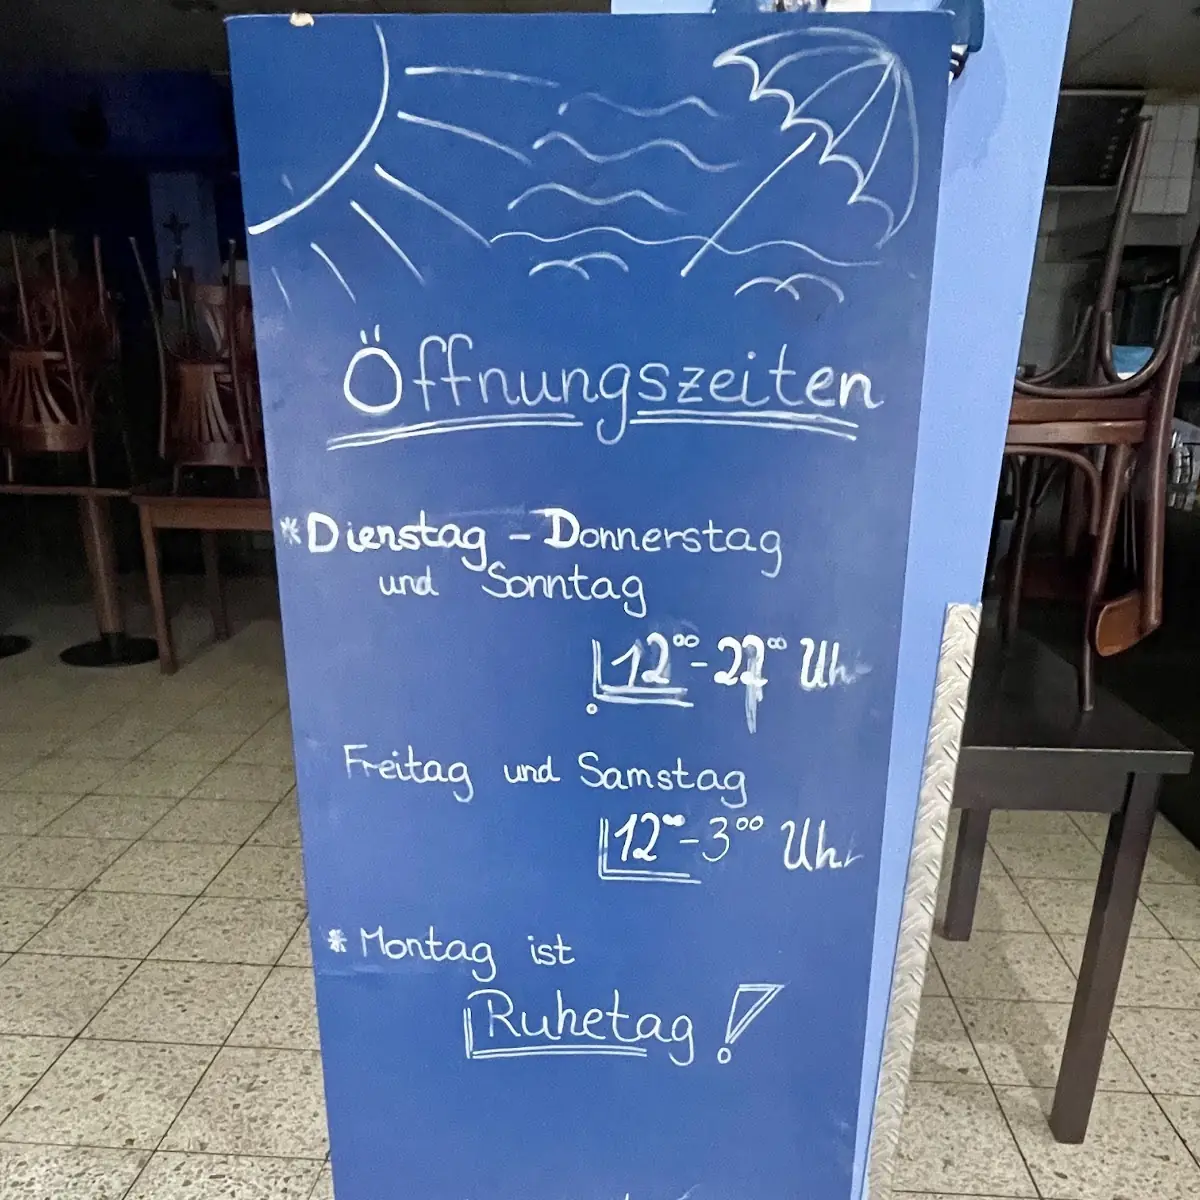 Öffnungszeiten
*Dienstag - Donnerstag
und Sonntag
12⁰⁰ - 22⁰⁰ Uhr
Freitag und Samstag
12⁰⁰ - 3⁰⁰ Uhr
* Montag ist
Ruhetag!